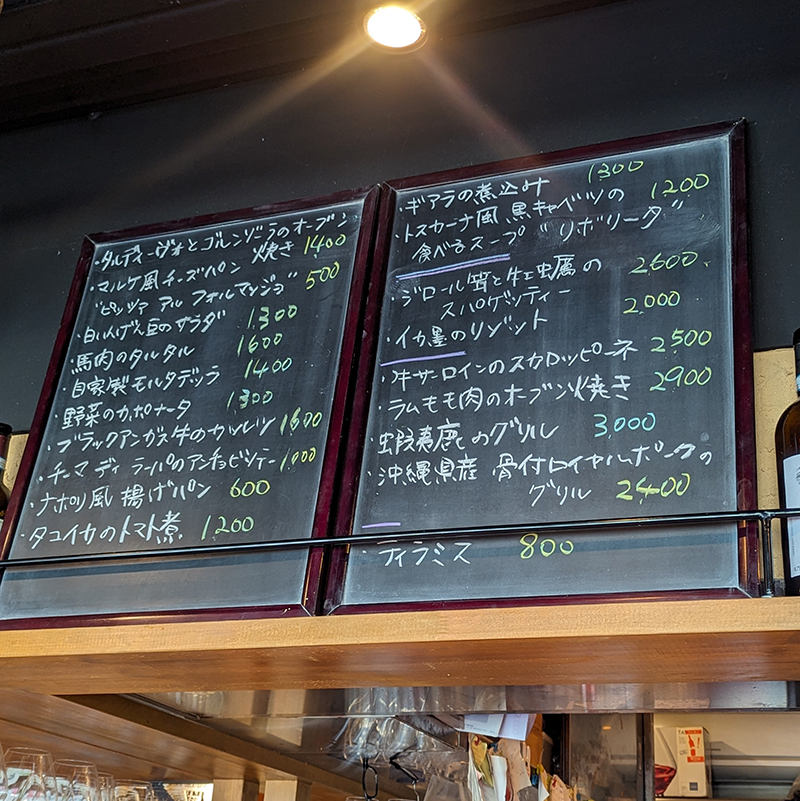 ・タルディーヴォとゴルゴンゾーラのオーブン
焼き 1400
・マルケ風チーズパン
"ピッツァ アル フォルマッジョ" 500
・白いんげん豆のサラダ 1300
・馬肉のタルタル 1600
・自家製モルタデッラ 1400
・野菜のカポナータ 1300
・ブラックアンガス牛のカツレツ 1600
・チーマ ディ ラーパのアンチョビソテー 1,000
・ナポリ風 揚げパン 600
・タコイカのトマト煮 1,200
・ギアラの煮込み 1300
・トスカーナ風 黒キャベツの 1200
食べるスープ "リボリータ"
・ジロール茸と牡蠣の 2600
スパゲッティー
・イカ墨のリゾット 2,000
・牛サーロインのスカロッピーネ 2500
・ラムモモ肉のオーブン焼き 2900
・蝦夷鹿のグリル 3,000
・沖縄県産 骨付ロイヤルポークの
グリル 2400
・ティラミス 800